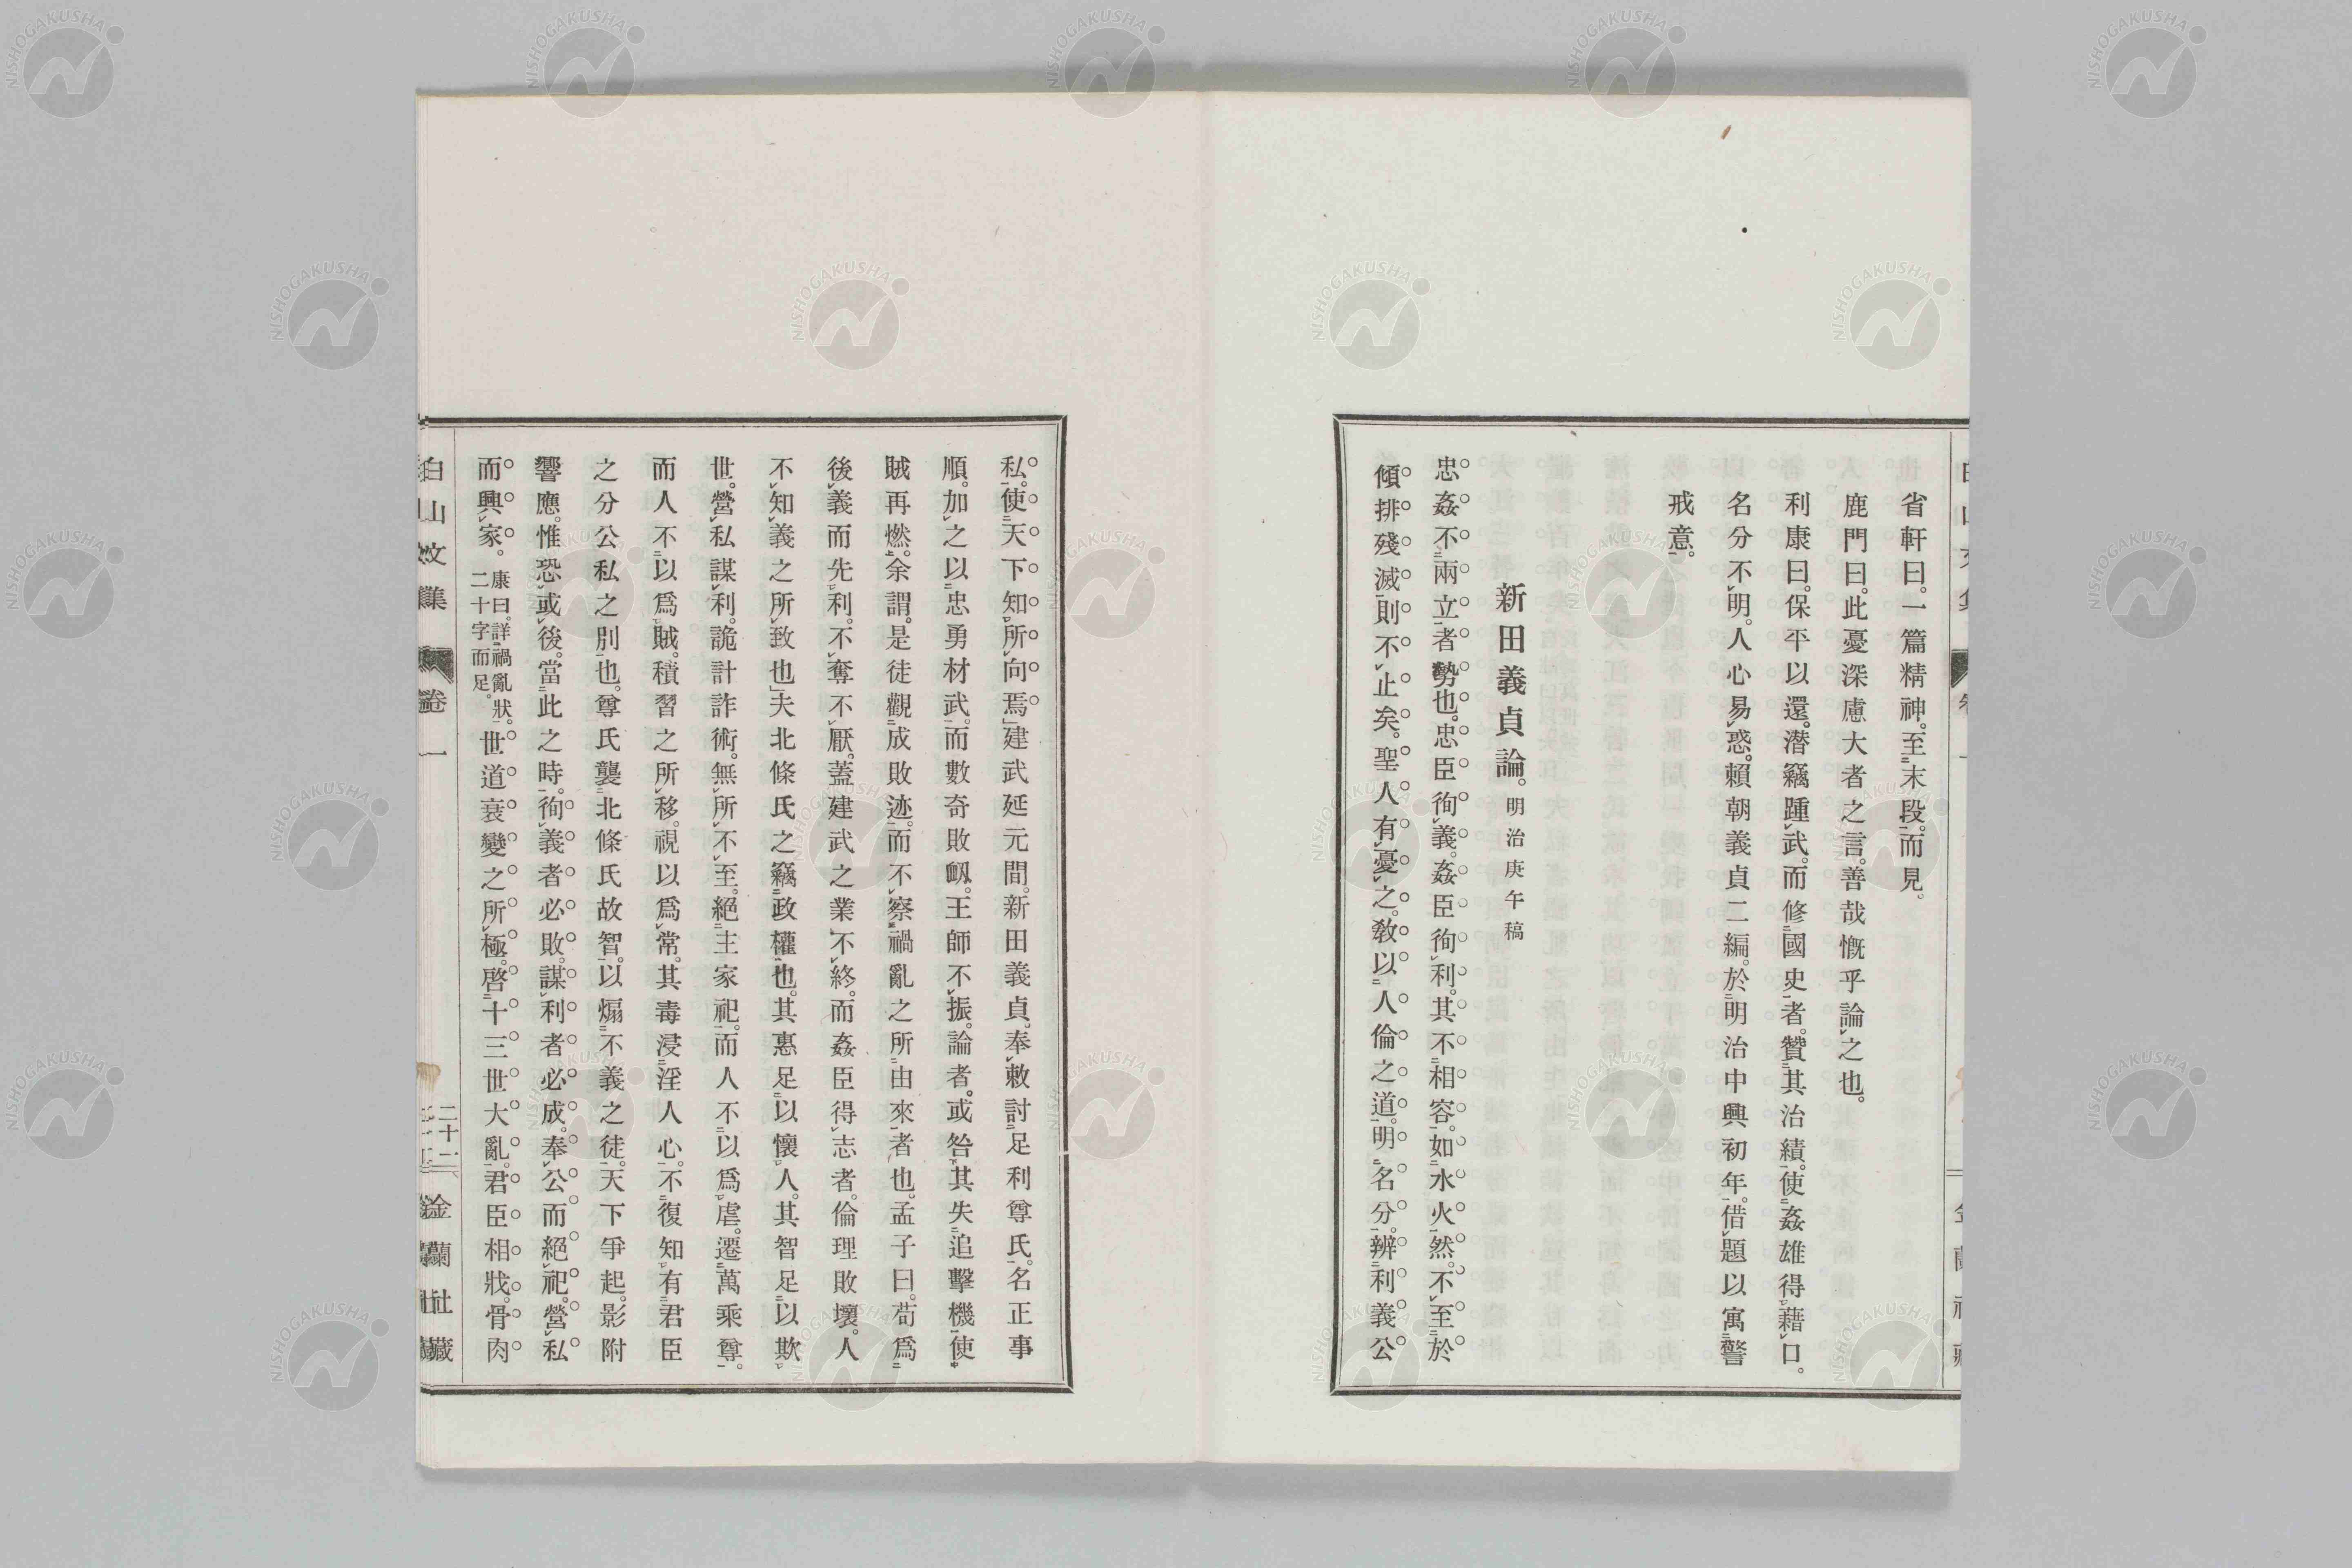 省軒曰。一篇精神。至末段。而見。
鹿門曰。此憂深慮大者之言。善哉慨乎論之也。
利康曰。保平以還。潛竊踵武。而修國史者。贊其治績。使姦雄得藉口。
名分不明。人心易惑。賴朝義貞二編。於明治中興初年。借題以寓警
戒意。
新田義貞論。明治庚午稿
忠姦不兩立者勢也。忠臣徇義。姦臣徇利。其不相容。如水火然。不至於
傾排殘滅。則不止矣。聖人有憂之。敎以人倫之道。明名分。辨利義公
私。使天下知所向焉。建武延元間。新田義貞。奉敕討足利尊氏。名正事
順。加之以忠勇材武。而數奇敗衂。王師不振。論者。或咎其失追擊機。使
賊再燃。余謂。是徒觀成敗迹。而不察禍亂之所由來者也。孟子曰。苟爲
後義而先利。不奪不厭。蓋建武之業不終。而姦臣得志者。倫理敗壞。人
不知義之所致也。夫北條氏之竊政權也。其惠足以懷人。其智足以欺
世。營私謀利。詭計詐術。無所不至。絕主家祀。而人不以爲虐。遷萬乘尊。
而人不以爲賊。積習之所移。視以爲常。其毒浸淫人心。不復知有君臣
之分公私之別也。尊氏襲北條氏故智。以煽不義之徒。天下爭起。影附
響應。惟恐或後。當此之時。徇義者必敗。謀利者必成。奉公而絕祀。營私
而興家。康曰。詳禍亂狀。二十字而足。世道衰變之所極。啓十三世大亂。君臣相戕。骨肉
白山文集 卷一 二十二 金蘭社藏